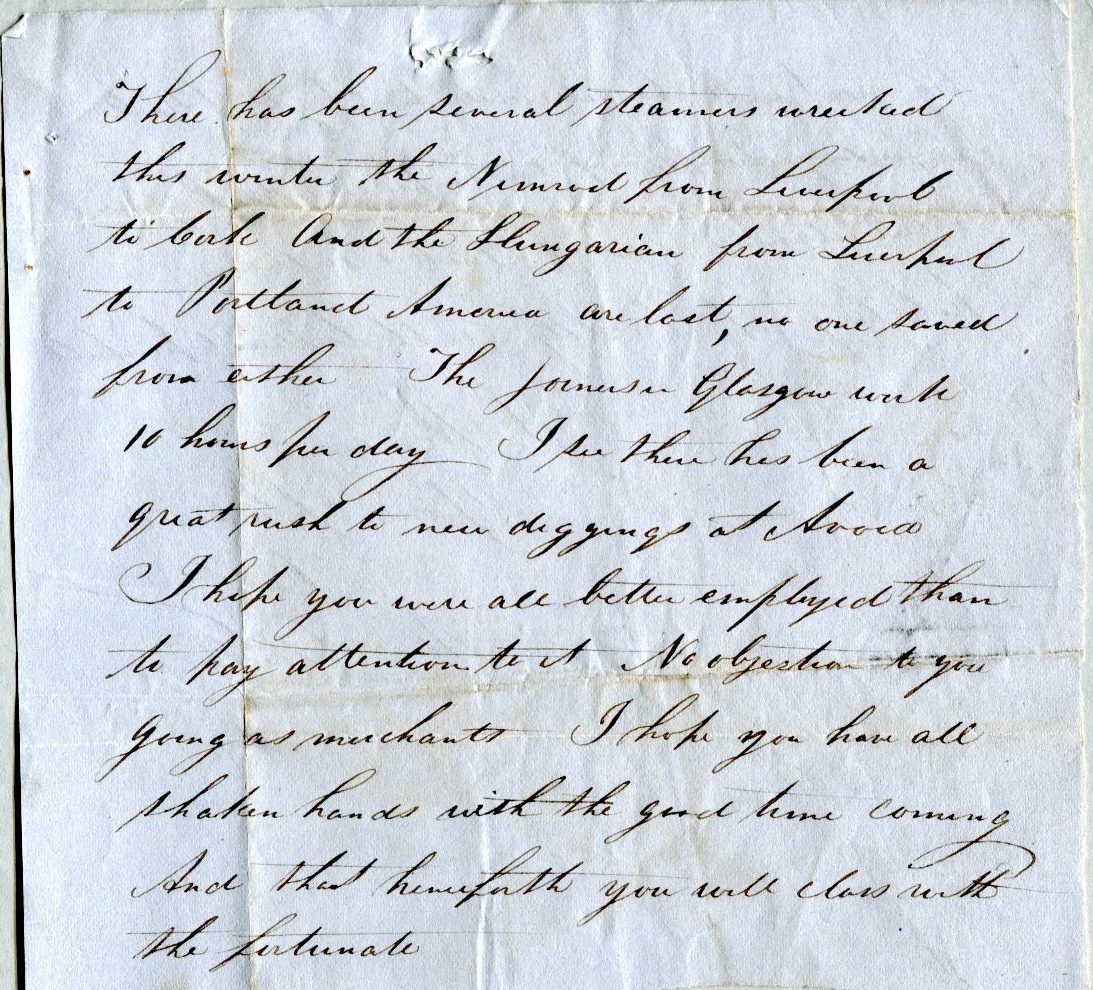 There has been several steamers wrecked
this winter the Nimrod from Liverpool
to Cork And the Hungarian from Liverpul
to Portland America are lost, no one saved
from either The Joiners in Glasgow work
10 hours per day I see there has been a
great rush to new diggings at Avoca
I hope you were all better employed than
to pay attention to it No objection to you
going as merchants I hope you have all
shaken hands with the good time coming
And that henceforth you will class with
the fortunate